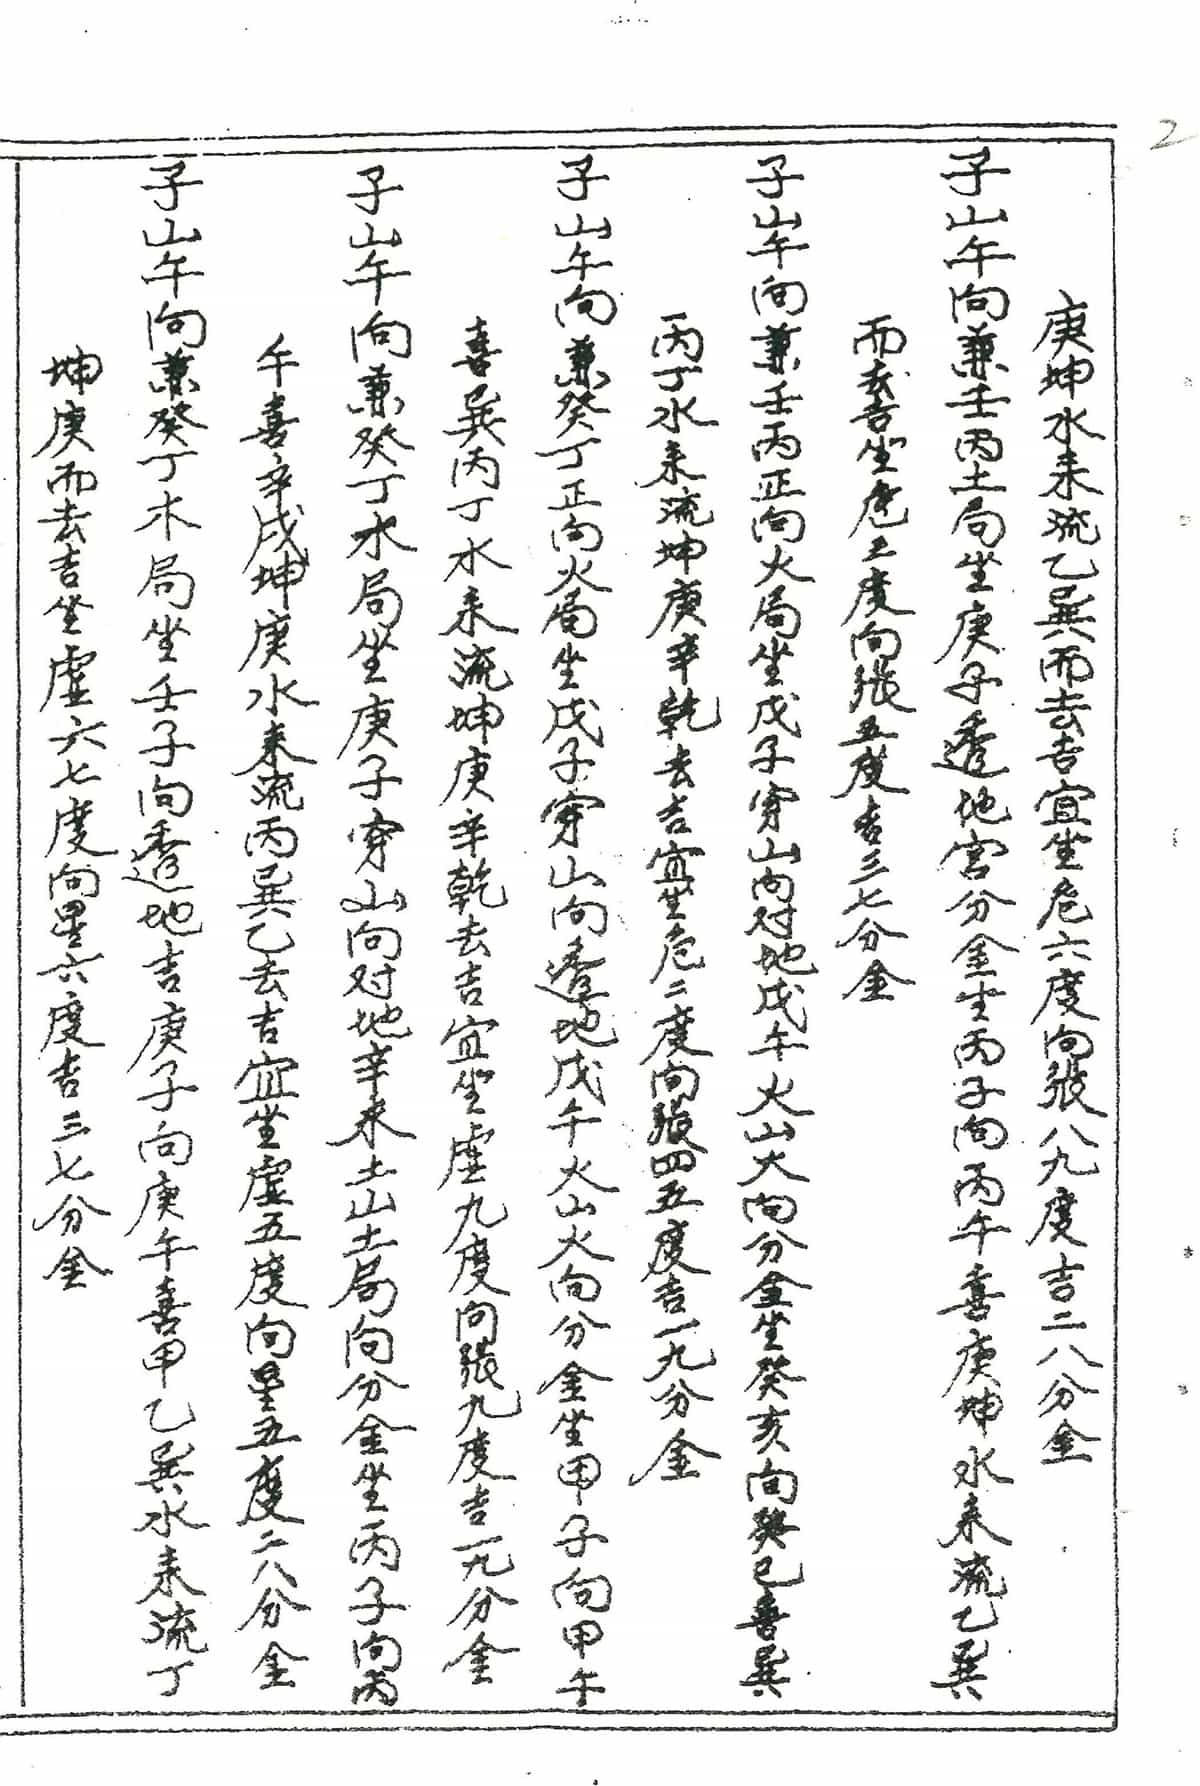 2
庚坤水来流乙巽而去吉宜坐危六度向张八九度吉二八分金
子山午向兼壬丙土局坐庚子透地宫分金坐丙子向丙午喜庚坤水来流乙巽
而去吉坐危五度向张五度吉三七分金
子山午向兼壬丙正向火局坐戊子穿山向对地戊午火山火向分金坐癸亥向癸巳喜巽
丙丁水来流坤庚辛乾去吉宜坐危二度向张四五度吉一九分金
子山午向兼癸丁正向火局坐戊子穿山向透地戊午火山火向分金坐甲子向甲午
喜巽丙丁水来流坤庚辛乾去吉宜坐虚九度向张九度吉一九分金
子山午向兼癸丁水局坐庚子穿山向对地辛未土山土局向分金坐丙子向丙
午喜辛戌坤庚水来流丙巽乙去吉宜坐虚五度向星五度二八分金
子山午向兼癸丁木局坐壬子向透地吉庚子向庚午喜甲乙巽水来流丁
坤庚而去吉坐虚六七度向星六度吉三七分金